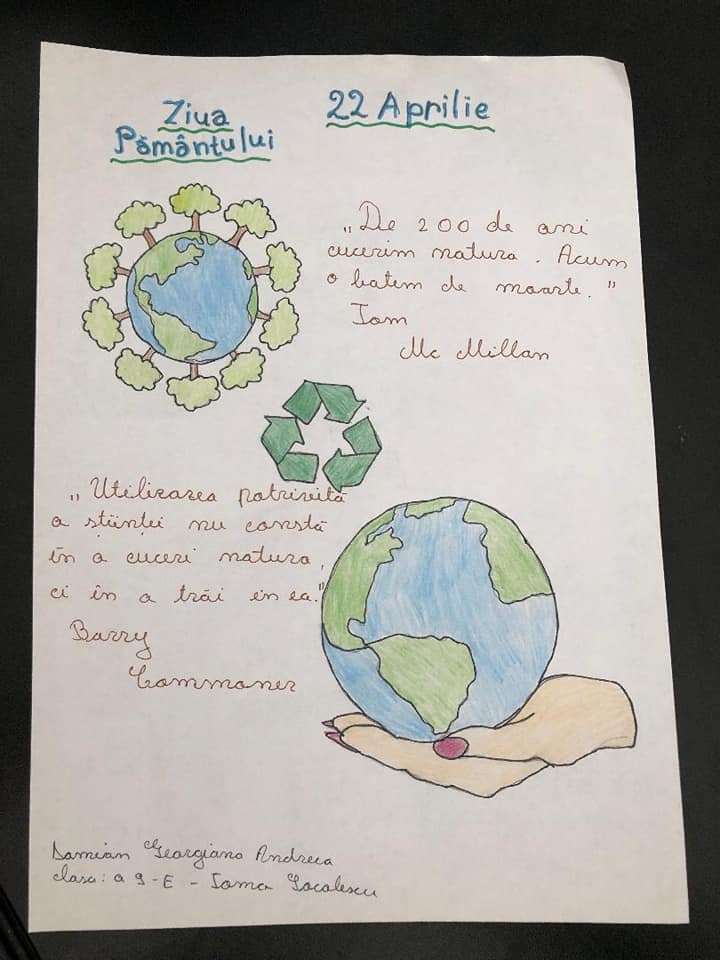 Ziua
Pământului
22 Aprilie
„De 200 de ani
cucerim natura. Acum
o batem de moarte."
Tom
Mc Millan
„Utilizarea potrivită
a științei nu constă
în a cuceri natura,
ci în a trăi în ea."
Barry
Commoner
Damian Georgiana Andreea
clasa: a 9-E -